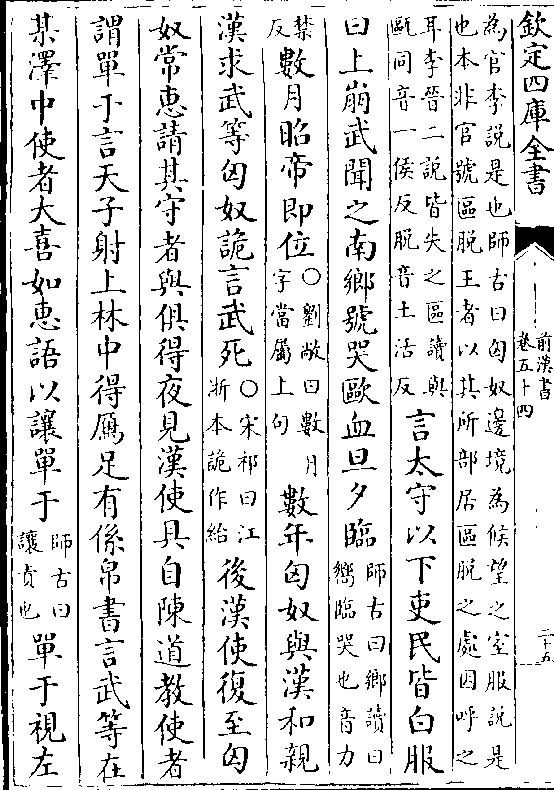 欽定四庫全書
前漢書
卷五十四
二十五
為官李說是也師古曰匈奴邊境為候望之室服說是
也本非官號區脫王者以其所部居區脫之處因呼之
耳李晉二說皆失之區讀與
甌同音一侯反脫音土活反
言太守以下吏民皆白服
曰上崩武聞之南鄉號哭歐血旦夕臨
師古曰鄉讀曰
嚮臨哭也音力
禁
反
數月昭帝即位
○劉敞曰數月
字當屬上句
數年匈奴與漢和親
漢求武等匈奴詭言武死
○宋祁曰江
浙本詭作紿
後漢使復至匈
奴常惠請其守者與俱得夜見漢使具自陳道教使者
謂單于言天子射上林中得鴈足有係帛書言武等在
某澤中使者大喜如惠語以讓單于
師古曰
讓責也
單于視左